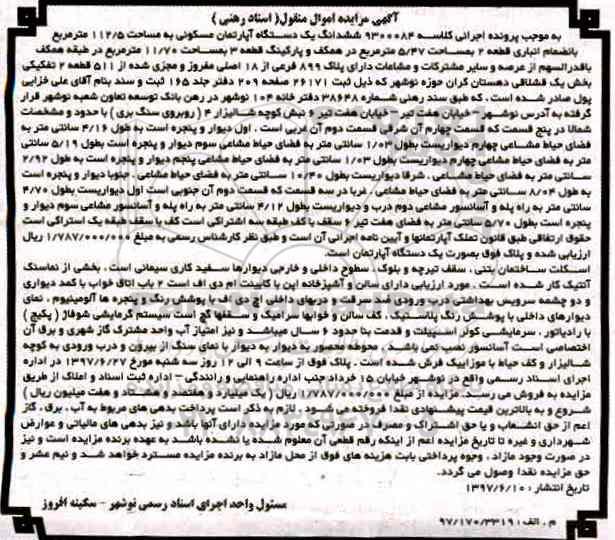 آگهی مزایده اموال منقول( اسناد رهنی )
به موجب پرونده اجرائی کلاسه ۹۳۰۰۰۸۴ ششدانگ یک دستگاه آپارتمان مسکونی به مساحت ۱۱۲/۵ مترمربع
بانضمام انباری قطعه ۲ بمساحت ۵/۴۷ مترمربع در همکف و پارکینگ قطعه ۳ بمساحت ۱۱/۷۰ مترمربع در طبقه همکف
باقدرالسهم از عرصه و سایر مشترکات و مشاعات دارای پلاک ۸۹۹ فرعی از ۱۸ اصلی مفروز و مجزی شده از ۵۱۱ قطعه ۲ تفکیکی
بخش یک قشلاقی دهستان کران حوزه نوشهر که ذیل ثبت ۲۶۱۷۱ صفحه ۲۰۹ دفتر جلد ۱۶۵ ثبت و سند بنام آقای علی خزایی
پول صادر شده است . که طبق سند رهنی شماره ۳۸۶۴۸ دفتر خانه ۱۰۴ نوشهر در رهن بانک توسعه تعاون شعبه نوشهر قرار
گرفته به آدرس نوشهر - خیابان هفت تیر - خیابان هفت تیر ۶ نبش کوچه شالیزار ۴ ( روبروی سنگ بری ) با حدود و مشخصات
شمالا در پنج قسمت که قسمت چهارم آن شرقی قسمت دوم آن غربی است . اول دیوار و پنجره است به طول ۴/۱۶ سانتی متر به
فضای حیاط مشاعی چهارم دیواریست بطول ۱/۰۳ سانتی متر به فضای حیاط مشاعی سوم دیوار و پنجره است بطول ۵/۱۹ سانتی
متر به فضای حیاط مشاعی چهارم دیواریست بطول ۱/۰۳ سانتی متر به فضای حیاط مشاعی پنجم دیوار و پنجره است به طول ۲/۹۲
سانتی متر به فضای حیاط مشاعی . شرقا دیواریست بطول ۱۰/۴۰ سانتی متر به فضای حیاط مشاعی . جنوبا دیوار و پنجره است
به طول ۸/۰۴ سانتی متر به فضای حیاط مشاعی . غربا در سه قسمت که قسمت دوم آن جنوبی است اول دیواریست بطول ۴/۷۰
سانتی متر به راه پله و آسانسور مشاعی دوم درب و دیواریست بطول ۴/۱۲ سانتی متر به راه پله و آسانسور مشاعی سوم دیوار و
پنجره است بطول ۵/۷۰ سانتی متر به فضای هفت تیر ۶ سقف با کف طبقه سه اشتراکی است کف با سقف طبقه یک استراکی است
حقوق ارتفاقی طبق قانون تملک آپارتمانها و آیین نامه اجرانی آن است و طبق نظر کارشناس رسمی به مبلغ ۱/۷۸۷/۰۰۰/۰۰۰ ریال
ارزیابی شده و پلاک فوق بصورت یک دستگاه آپارتمان است.
اسکلت ساختمان بتنی ، سقف تیرچه و بلوک ، سطوح داخلی و خارجی دیوارها سفید کاری سیمانی است . بخشی از نماسنگ
آنتیک کار شده است . مورد ارزیابی دارای سالن و آشپزخانه اپن با کابینت ام دی اف است ۲ باب اتاق خواب با کمد دیواری
و دو چشمه سرویس بهداشتی درب ورودی ضد سرقت و دربهای داخلی اچ دی اف با پوشش رنگ و پنجره ها آلومینیوم . نمای
دیوارهای داخلی با پوشش رنگ پلاستیک . کف سالن و خوابها سرامیک و سقفها گچ است سیستم گرمایشی شوفاژ ( پکیج )
با رادیاتور . سرمایشی کولر اسپیلت و قدمت بنا حدود ۶ سال میباشد و نیز امتیاز آب واحد مشترک گاز شهری و برق آن
اختصاصی است آسانسور نصب نمی باشد . محوطه محصور به دیوار به دیوار با نمای سنگ از بیرون و درب ورودی به کوچه
شالیزار و کف حیاط با موزاییک فرش شده است . پلاک فوق از ساعت ۹ الی ۱۲ روز سه شنبه مورخ ۱۳۹۷/۶/۲۷ در اداره
اجرای اسناد رسمی واقع در نوشهر خیابان ۱۵ خرداد جنب اداره راهنمایی و رانندگی - اداره ثبت اسناد و املاک از طریق
مزایده به فروش می رسد. مزایده از مبلغ ۱/۷۸۷/۰۰۰/۰۰۰ ریال ( یک میلیارد و هفتصد و هشتاد و هفت میلیون ریال )
شروع و به بالاترین قیمت پیشنهادی نقدا فروخته می شود . لازم به ذکر است پرداخت بدهی های مربوط به آب . برق . گاز
اعم از حق انشعاب و یا حق اشتراک و مصرف در صورتی که مورد مزایده دارای آنها باشد و نیز بدهی های مالیاتی و عوارض
شهرداری و غیره تا تاریخ مزایده اعم از اینکه رقم قطعی آن معلوم شده یا نشده باشد به عهده برنده مزایده است و نیز
در صورت وجود مازاد . وجوه پرداختی بابت هزینه های فوق از محل مازاد به برنده مزایده مسترد خواهد شد و نیم عشر و
حق مزایده نقدا وصول می گردد.
تاریخ انتشار : ۱۳۹۷/۶/۱۰
مسئول واحد اجرای اسناد رسمی نوشهر - سکینه افروز
م . الف : ۹۷/۱۷۰/۳۳۱۹